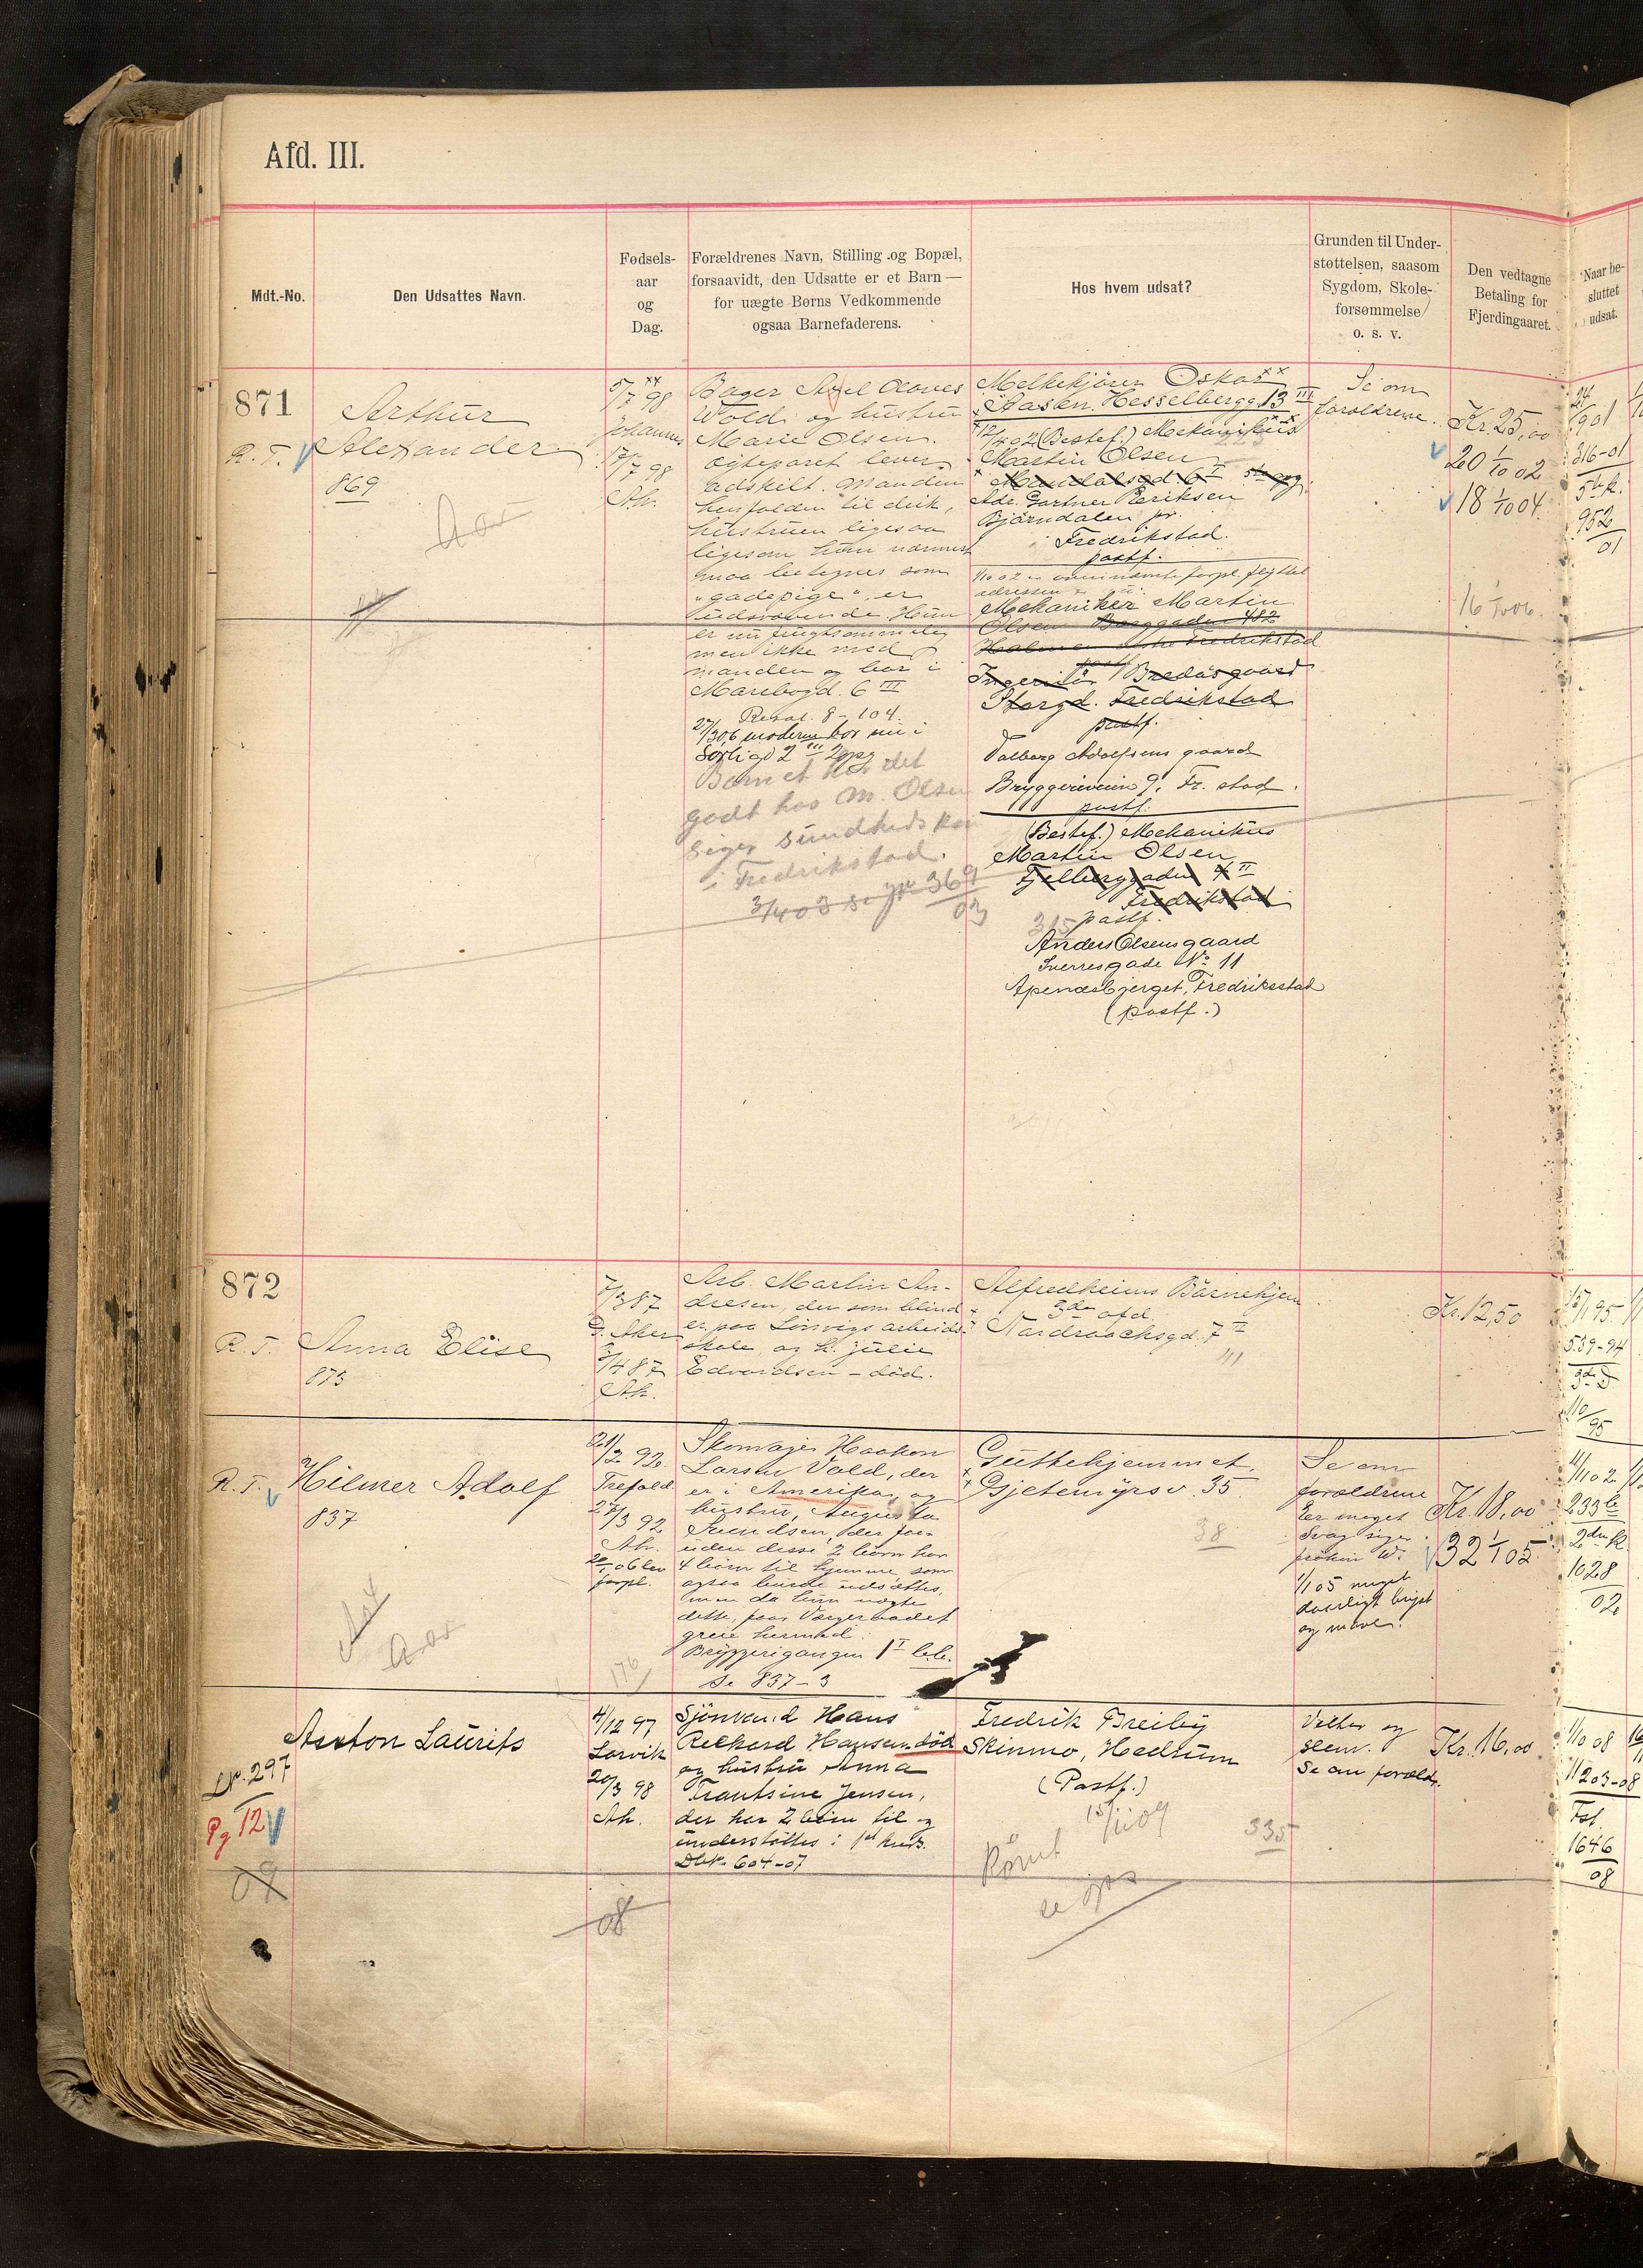 Afd. III.
Mdt.-No.
Den Udsattes Navn.
Fødsels-
aar
og
Dag.
Forældrenes Navn, Stilling og Bopæl,
forsaavidt, den Udsatte er et Barn —
for uægte Børns Vedkommende
ogsaa Barnefaderens.
Hos hvem udsat?
Grunden til Under-
støttelsen, saasom
Sygdom, Skole-
forsømmelse
o. s. v.
Den vedtagne
Betaling for
Fjerdingaaret.
Naar be-
sluttet
udsat.
871
R. T.
Arthur
Alexander
869
5/7 98
Johannes
17/7 98
Ak.
Bager Axel
Wold og hustru
Marie Olsen.
Ægteparet lever
adskilt. Manden
henfalden til drik,
hustruen ligesaa
ligesom hun nærmest
maa betegnes som
"gadepige", er
udsvævende. Hun
er nu frugtsommelig
men ikke med
manden og bor i
Maribogd. 6 III
Resol. 8-104.
27/3 06 moderen bor nu i
Sørligd 2 III 2 opg
Barnet har det
godt hos M. Olsen
siger sundheds
i Fredrikstad.
3/4 03 se jr 369
03
Melkekjører Oskar
Aasen. Hesselbergg. 13 III
(Bestef.) Mekanikus
Martin Olsen
Adr. Gartner Eeriksen
Bjørndalen pr.
Fredrikstad.
postf.
1/10 02 er ovennævnte forpl. flyttet
adressen er nu:
Mekaniker Martin
Olsen Borggaden 482
Holmen Fredrikstad
Bredes gaard
Storgd. Fredrikstad
postf.
Valborg Adolfsens gaard
Bryggeriveien 9, Fr. stad.
postf.
(Bestef.) Mekanikus
Martin Olsen
Fjelberggaden 4 II
Fredrikstad
postf.
315
Anders Olsens gaard
Sverresgade No 11
Apenæsbjerget, Fredriksstad
(postf.)
Se om
forældrene.
Kr. 25,00
20 1/10 02
18 1/10 04
16
24/1 901
316-01
5te k.
952
01
872
R. T.
Anna Elise
873
7/3 87
Ø. Aker
3/4 87
Ak.
Arb. Martin An-
dresen, der som blind
er paa Sørvigs arbeids-
skole, og h. Julie
Edvardsen - død.
Alfredheims Børnehjem
3de afd
Nordraachsgd. 7 II
111
Kr. 12,50
15/1 95
539-94
3die D
110
95
R. T.
Hilmer Adolf
837
21/2 92
Trefold
27/3 92
Ak.
forpl.
Skomager Haakon
Larsen Vold, der
er i Amerika, og
hustru, Augusta
der for-
uden disse 2 børn har
4 børn til hjemme, som
ogsaa burde udsættes,
men da hun nægter
dette, faar Værgeraadet
greie hermed.
Bryggerigangen 1 I b.b.
Se 837-3
176
Guttehjemmet.
Gjetemyrsv. 35.
38
Se om
forældrene
Er meget
svag siger
frøken W.
1/1 05 meget
daarligt bryst
og mave.
Kr. 18,00
32 1/1 05
233 b
2den k.
1028
02
Anton Laurits
Lp. 297
Pg 12
07
4/12 97
Larvik
20/3 98
Ak.
Sjømand Hans
Rickard Hansen død
og hustru Anna
Trantsine Jensen,
der har 2 børn til og
understøttes i 1st kreds.
Dbk. 604-07
08
Fredrik Breiby
Skinmo, Hedrum
(Postf.)
15/11 09
Rømt
335
se
Vether og
slem.
Se om foræld.
Kr. 16,00
1/10 08
11203-08
Tst.
1646
08